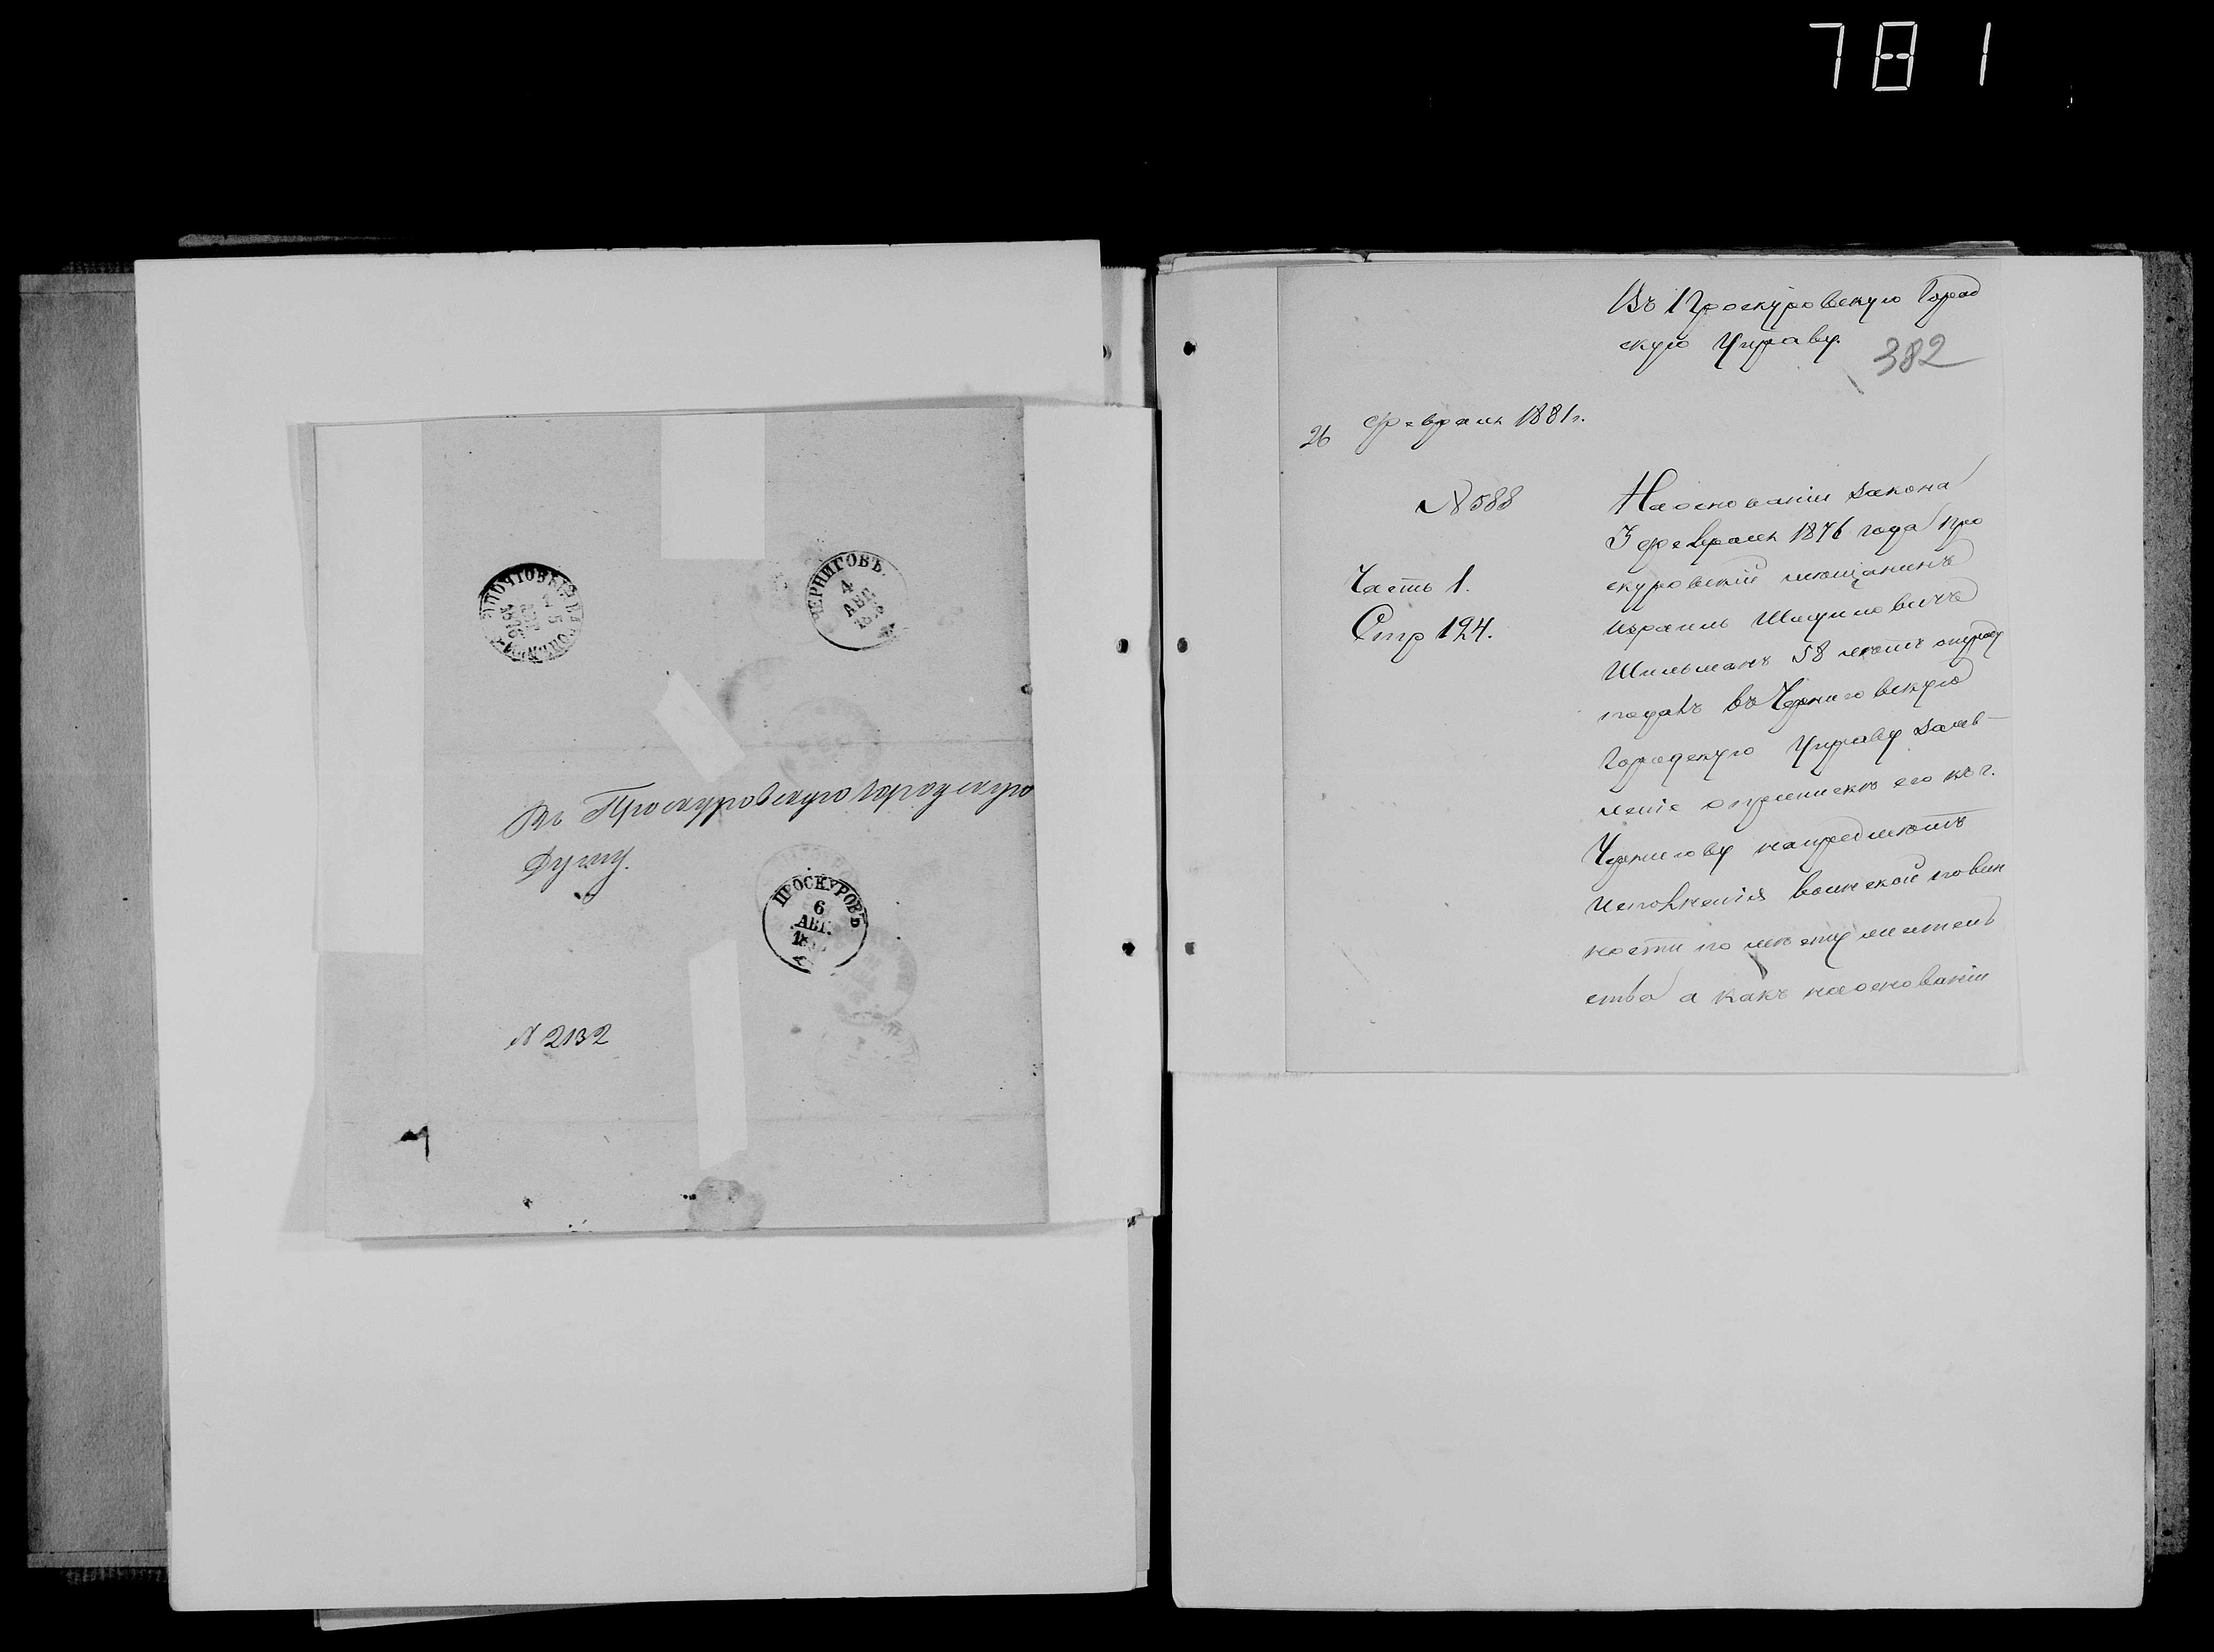 781
ПОЧТОВЫЙ ВАГОНЪ
5
АВГ
1876
ЧЕРНИГОВЪ.
4
АВГ.
Въ Проскуровскую городскую
Думу.
ПРОСКУРОВЪ
6
АВГ.
N 2132
Въ Проскуровскую Город
скую Управу.
382
26 февраля 1881 г.
N 588
Часть 1.
Стр 124.
На основаніи закона
3 февраля 1876 года про
скуровскій мѣщанинъ
Израиль
Шильманъ 58 лѣтъ
подалъ въ Черниговскую
Городскую Управу заяв-
леніе о припискѣ его къ г.
Чернигову на предметъ
исполненія воинской повин
ности по мѣсту житель
ства а какъ на основаніи